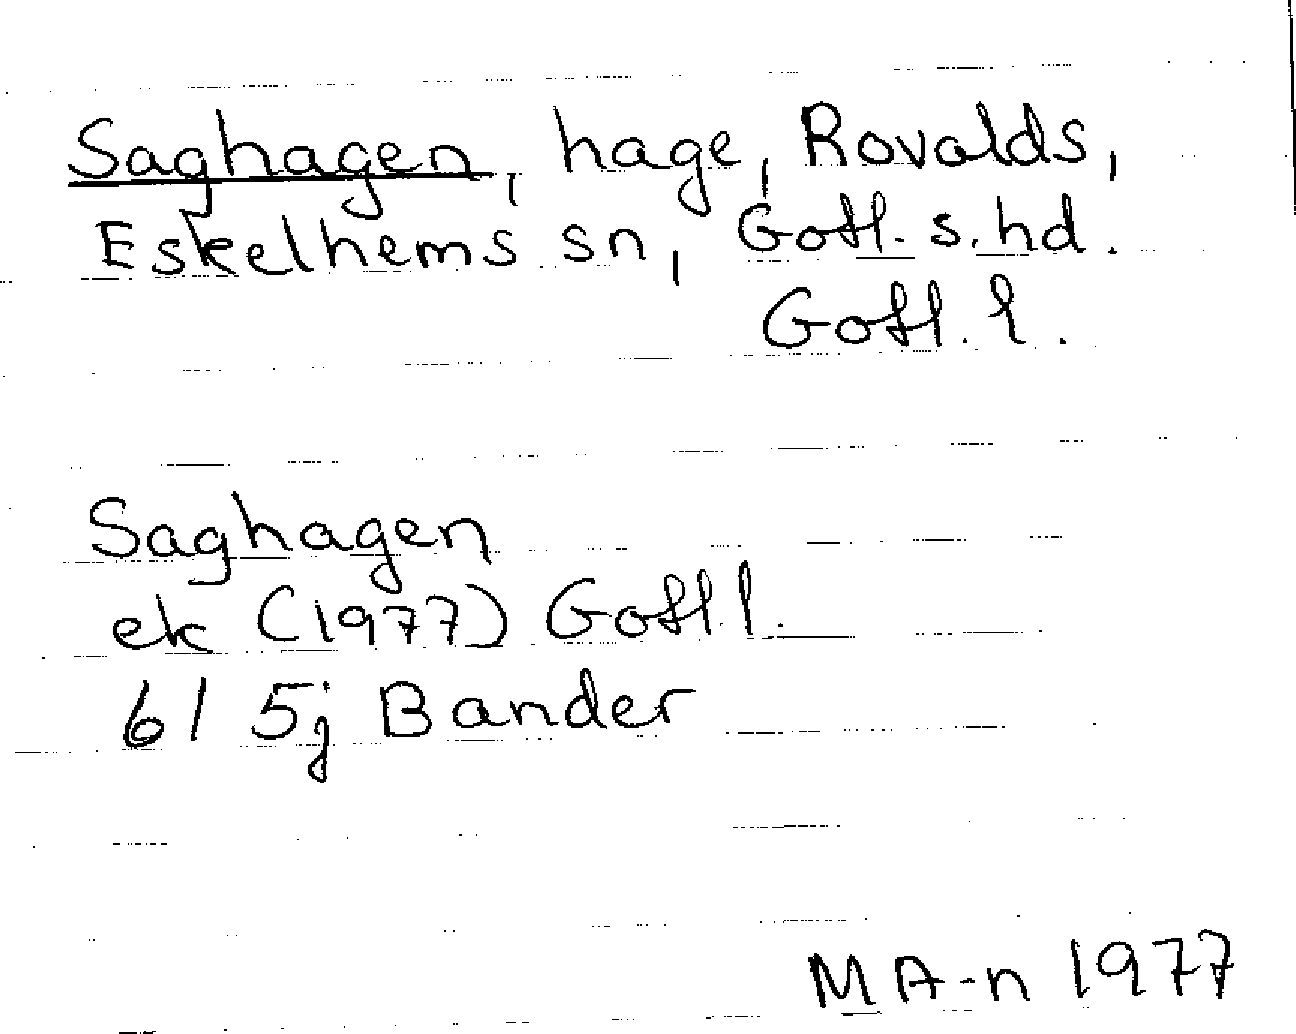 Saghagen, hage, Rovalds,
Eskelhems sn, Gotl. s. hd.
Gotl. l.
Saghagen
ek (1977) Gotl. l.
6I 5j Bander
MA-n 1977